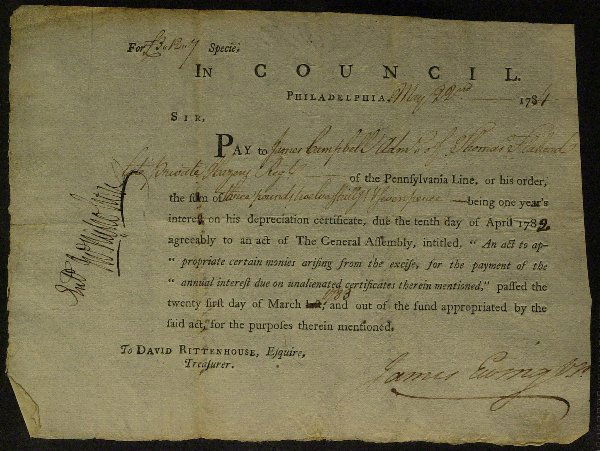 For £3.12.7 Specie.
IN COUNCIL.
PHILADELPHIA, May 22nd 1784
SIR,
PAY to James Campbell Adm. of Thomas
late Private Regt. of the Pennsylvania Line, or his order,
the sum of three pounds twelve shills. & seven pence being one year's
interest on his depreciation certificate, due the tenth day of April 1782,
agreeably to an act of The General Assembly, intitled, " An act to ap-
" propriate certain monies arising from the excise, for the payment of the
" annual interest due on unalienated certificates therein mentioned," passed the
twenty first day of March last, 1783 and out of the fund appropriated by the
said act, for the purposes therein mentioned.
To DAVID RITTENHOUSE, Esquire,
Treasurer.
James Ewing V.P.